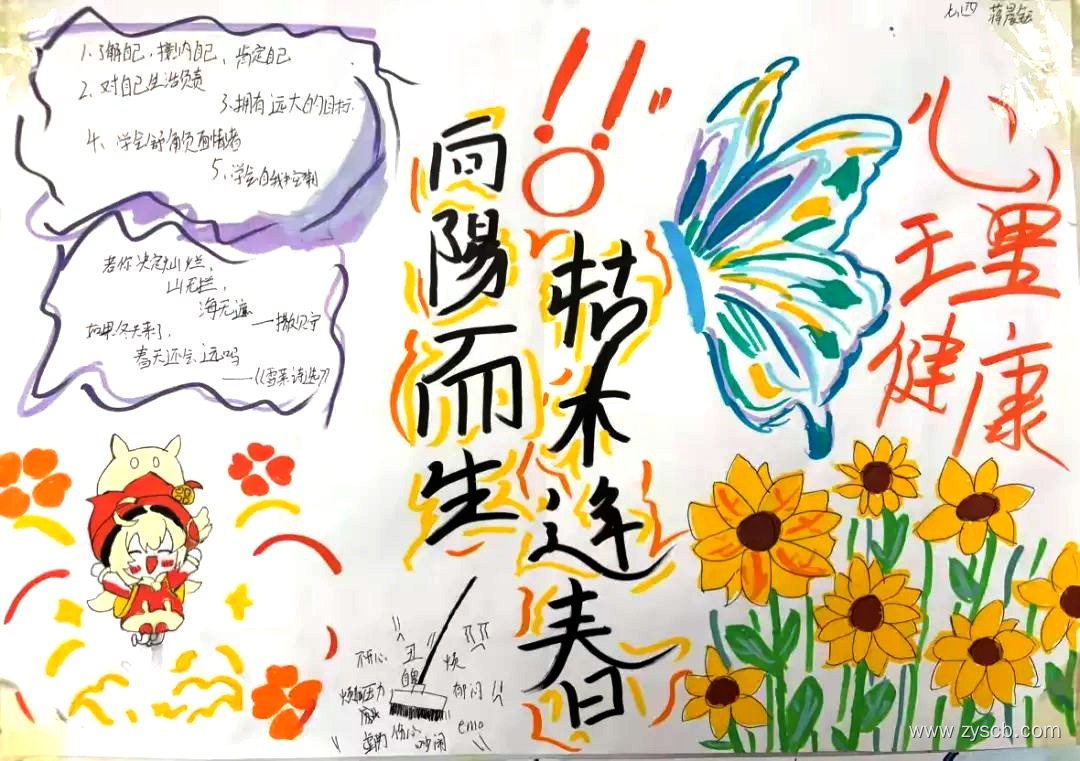 七四 蒋晨钰
1、了解自己,接纳自己,肯定自己
2、对自己生活负责
3、拥有远大的目标.
4、学会舒角负面情者
5、学会自我控制
若你决定灿烂,
山无拦,
海无遮
——撒贝宁
如果冬天来了,
春天还会远吗
——《雪莱诗选》
向陽而生
!!
枯木逢春
心里
王
健康
不开心
丑
烦
自卑
郁闷
emo
压力
伤心
www.zyscb.com